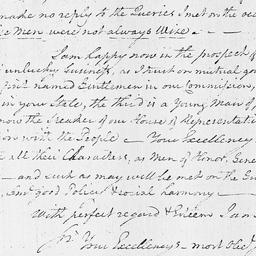 make no reply to the Queries I met on the occ
se Men were not always Wise
I am happy now in the prospect of
unlucky business, as I trust on mutual go
first named Gentlemen in our Commission,
in your State, the third is a Young Man of
now the Speaker of our House of Representati
ion with the People — Your Excellency
all their Characters, as Men of Honor, Gene
— and such as may will be met on the
and good Police & social harmony —
With perfect regard & Esteem I am
Sr. Your Excellency's most Obed